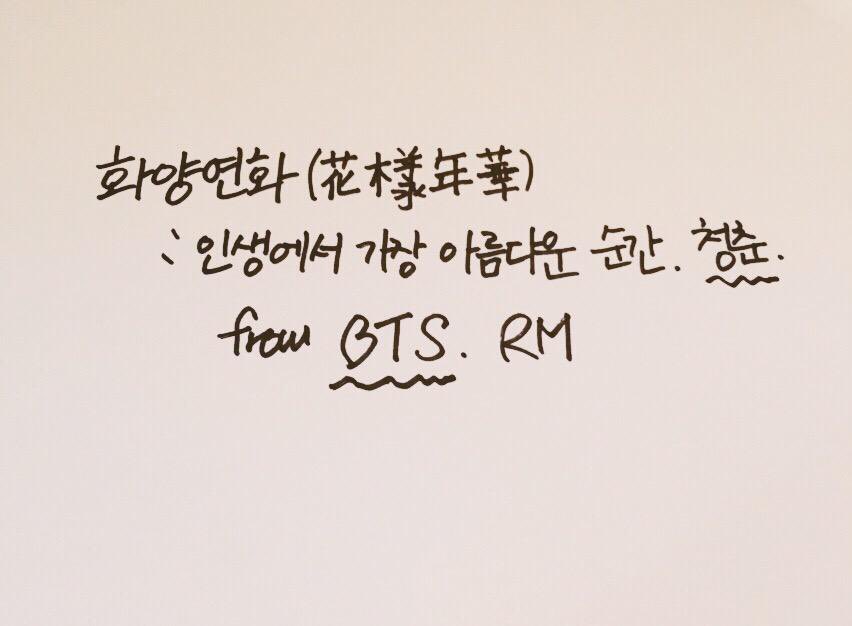 화양연화(花樣年華)
: 인생에서 가장 아름다운 순간. 청춘.
from BTS. RM